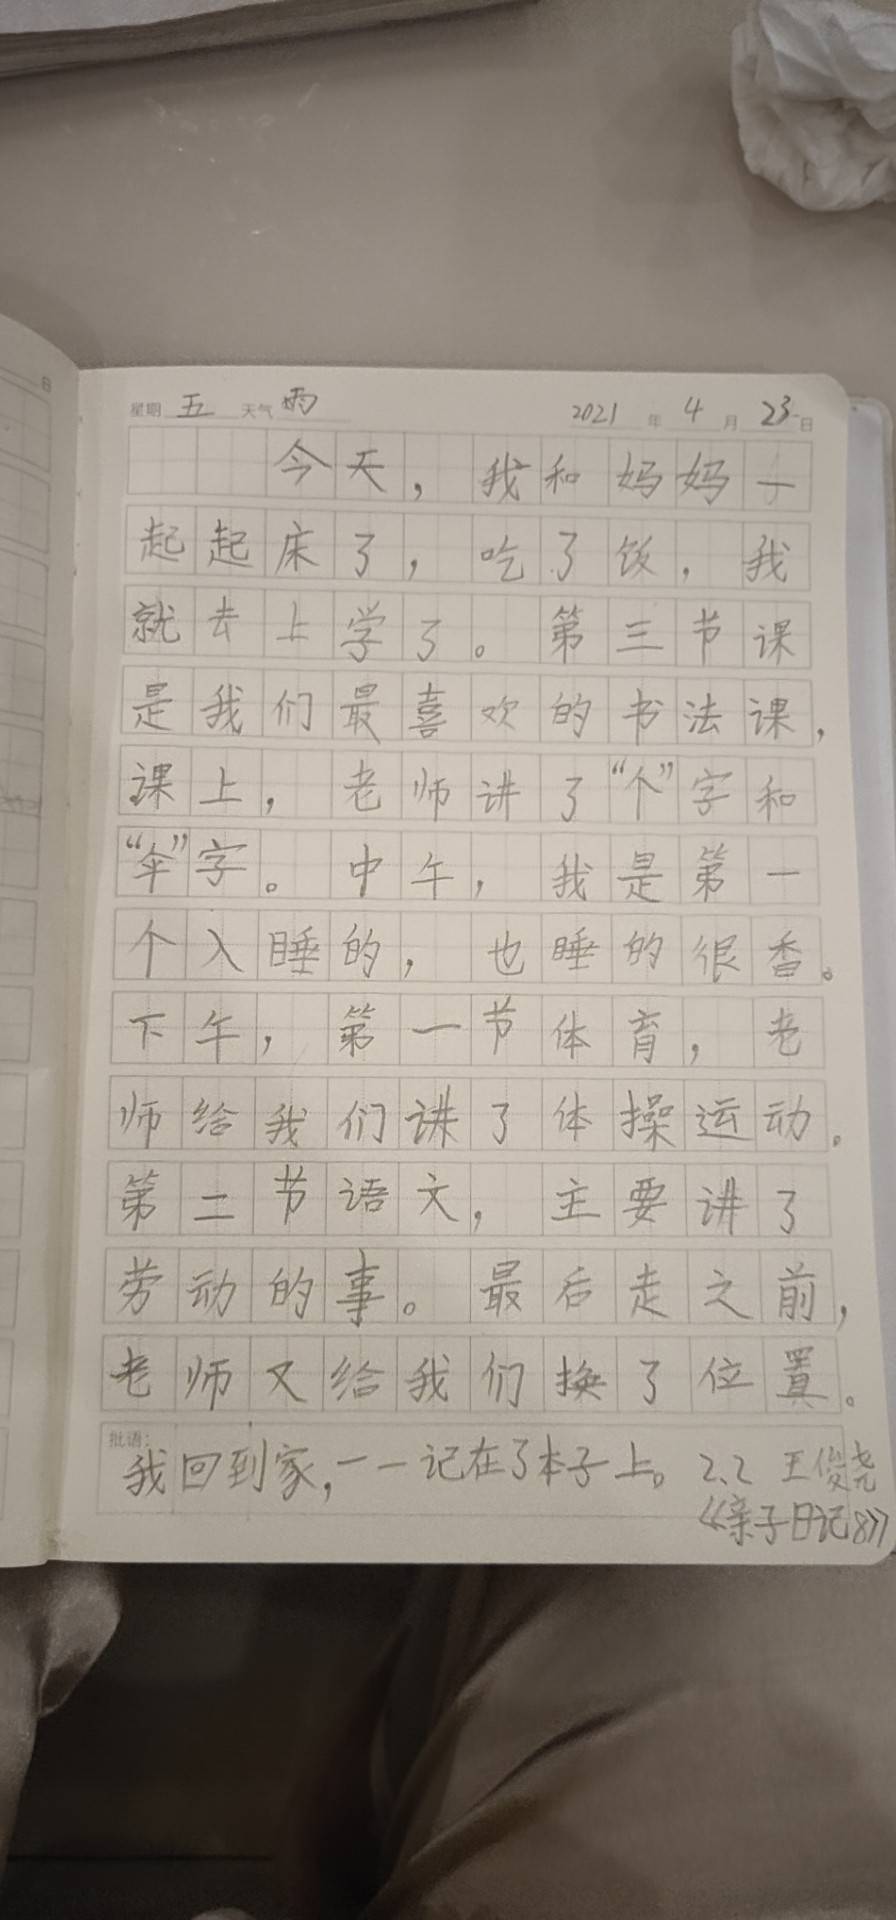 星期 五 天气 雨 2021 年 4 月 23 日
今天，我和妈妈一
起起床了，吃了饭，我
就去上学了。第三节课
是我们最喜欢的书法课，
课上，老师讲了“个”字和
“伞”字。中午，我是第一
个入睡的，也睡的很香。
下午，第一节体育，老
师给我们讲了体操运动。
第二节语文，主要讲了
劳动的事。最后走之前，
老师又给我们换了位置。
批语：
我回到家，一一记在了本子上。 2.2 王俊尧
《亲子日记8》
日